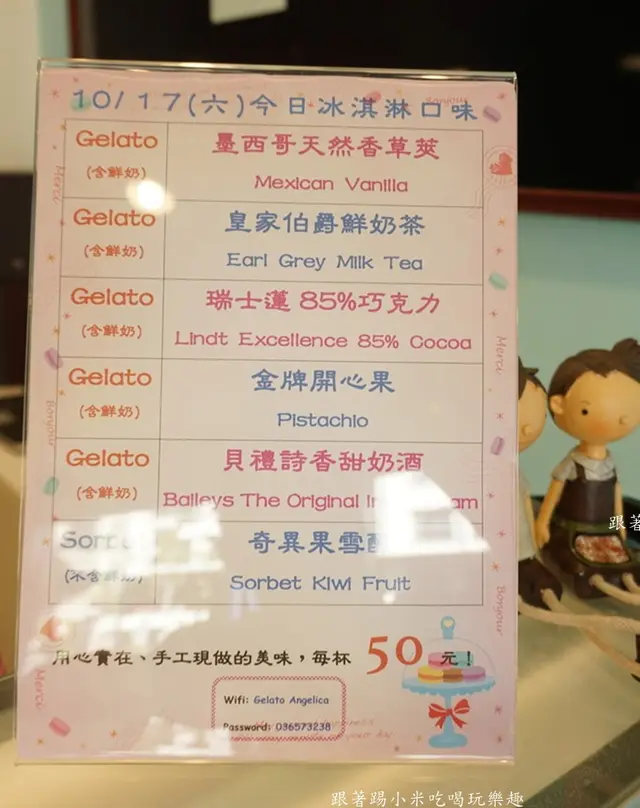 10/17(六)今日冰淇淋口味
Gelato
(含鮮奶)
墨西哥天然香草莢
Mexican Vanilla
Gelato
(含鮮奶)
皇家伯爵鮮奶茶
Earl Grey Milk Tea
Gelato
(含鮮奶)
瑞士蓮 85%巧克力
Lindt Excellence 85% Cocoa
Gelato
(含鮮奶)
金牌開心果
Pistachio
Gelato
(含鮮奶)
貝禮詩香甜奶酒
Baileys The Original
(不含鮮奶)
奇異果雪
Sorbet Kiwi Fruit
用心實在、手工現做的美味，每杯 50 元！
Wifi: Gelato Angelica
Password: 036573238
Merci
Bonjour
Merci
Merci
Bonjour
跟著
跟著踢小米吃喝玩樂趣